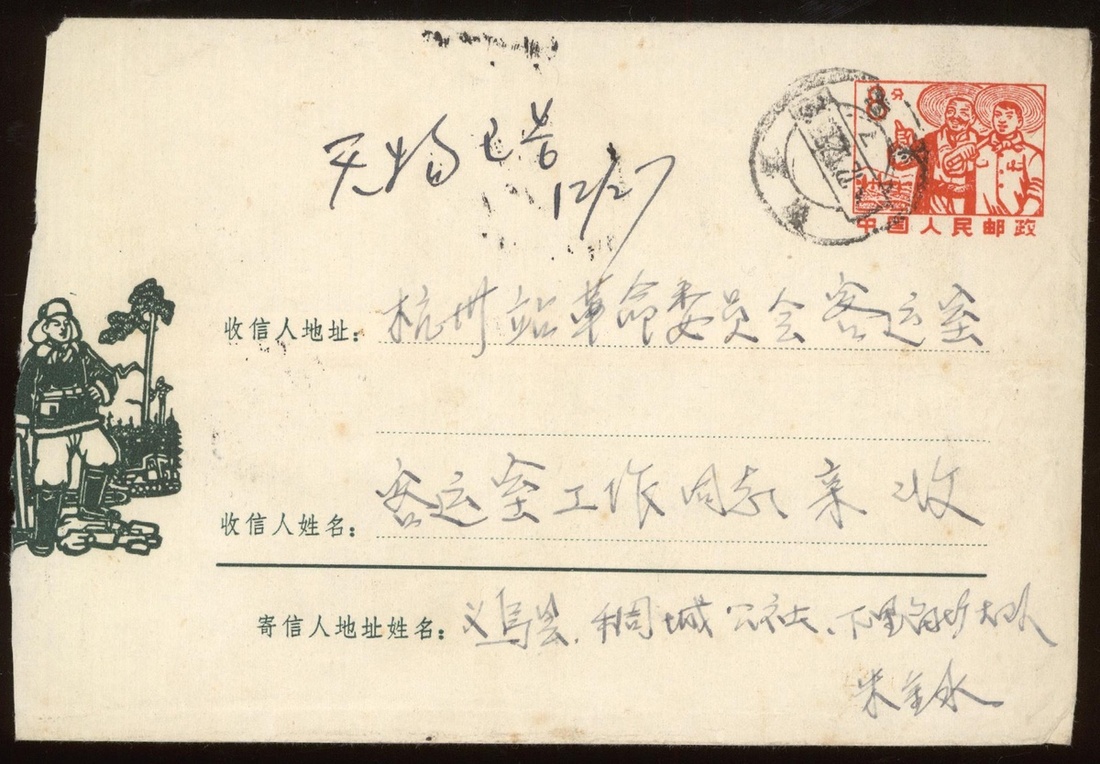 8分
中国人民邮政
已答
12/27
收信人地址: 杭州站革命委员会客运室
收信人姓名: 客运室工作同志亲收
寄信人地址姓名: 义乌县.稠城公社、下里角圹大队
朱金水